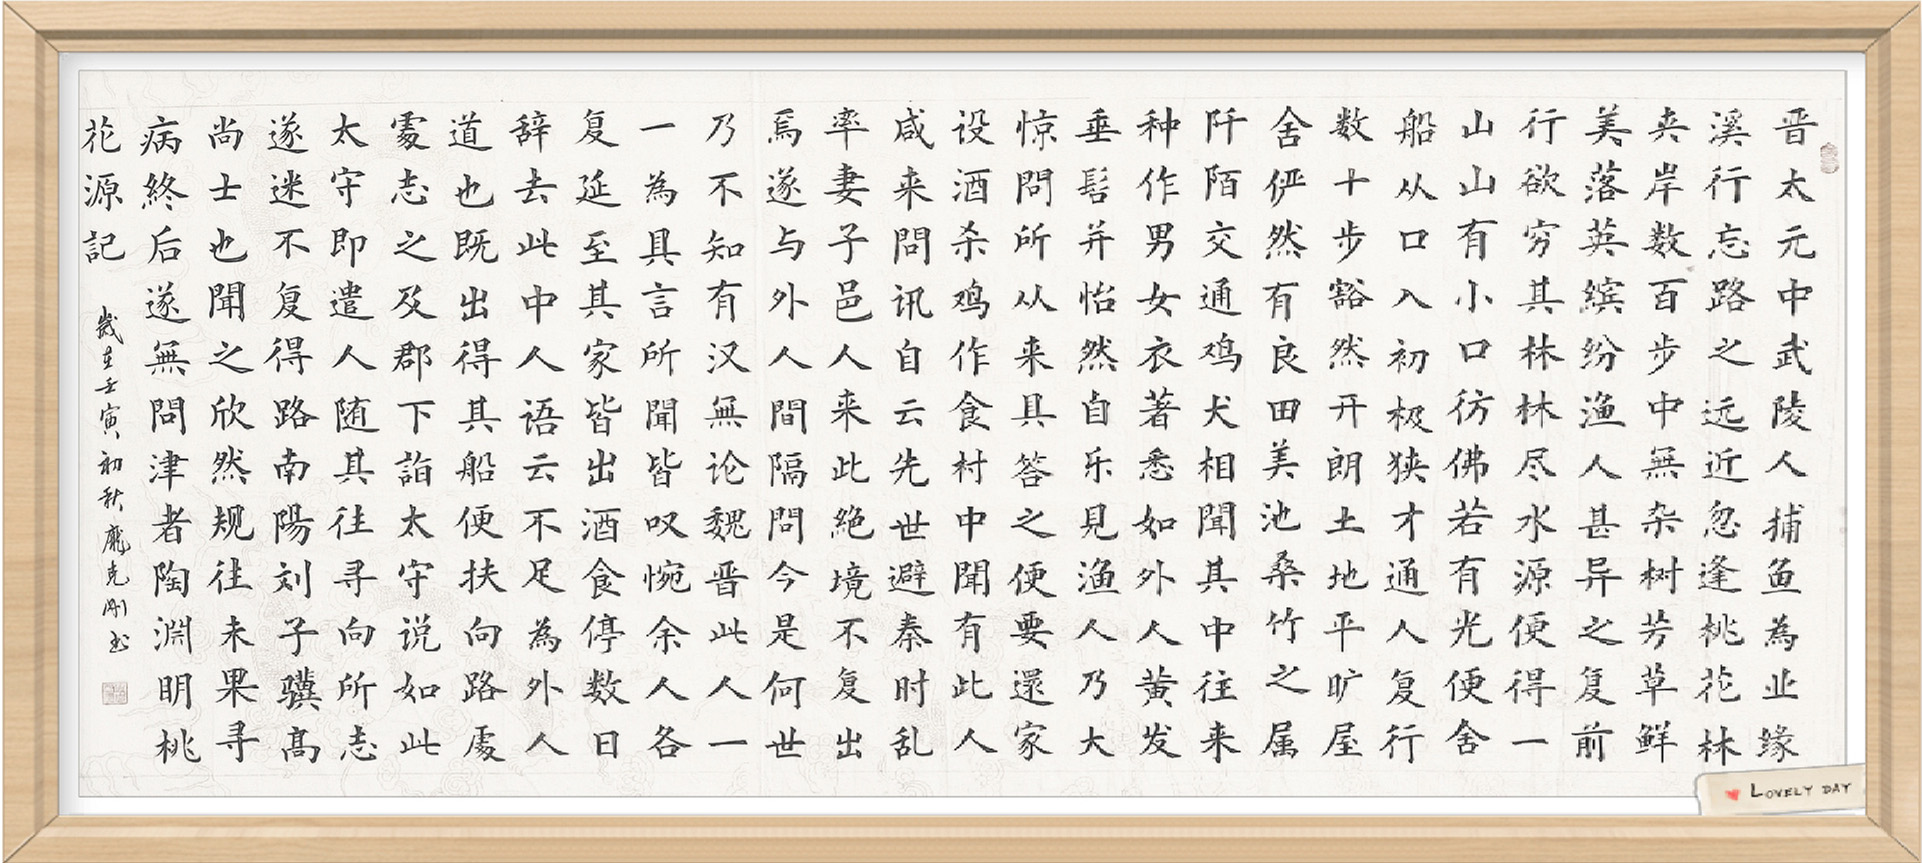 晋太元中武陵人捕鱼為业缘
溪行忘路之远近忽逢桃花林
夹岸数百步中無杂树芳草鲜
美落英缤纷渔人甚异之复前
行欲穷其林林尽水源便得一
山山有小口彷佛若有光便舍
船从口入初极狭才通人复行
数十步豁然开朗土地平旷屋
舍俨然有良田美池桑竹之属
阡陌交通鸡犬相聞其中往来
种作男女衣著悉如外人黄发
垂髫并怡然自乐見渔人乃大
惊問所从来具答之便要還家
设酒杀鸡作食村中聞有此人
咸来問讯自云先世避秦时乱
率妻子邑人来此絶境不复出
焉遂与外人間隔問今是何世
乃不知有汉無论魏晋此人一
一為具言所聞皆叹惋余人各
复延至其家皆出酒食停数日
辞去此中人语云不足為外人
道也既出得其船便扶向路處
處志之及郡下詣太守说如此
太守即遣人随其往寻向所志
遂迷不复得路南陽刘子骥高
尚士也聞之欣然规往未果寻
病終后遂無問津者陶淵明桃
花源記
歲在壬寅初秋龐克刚书
LOVELY DAY